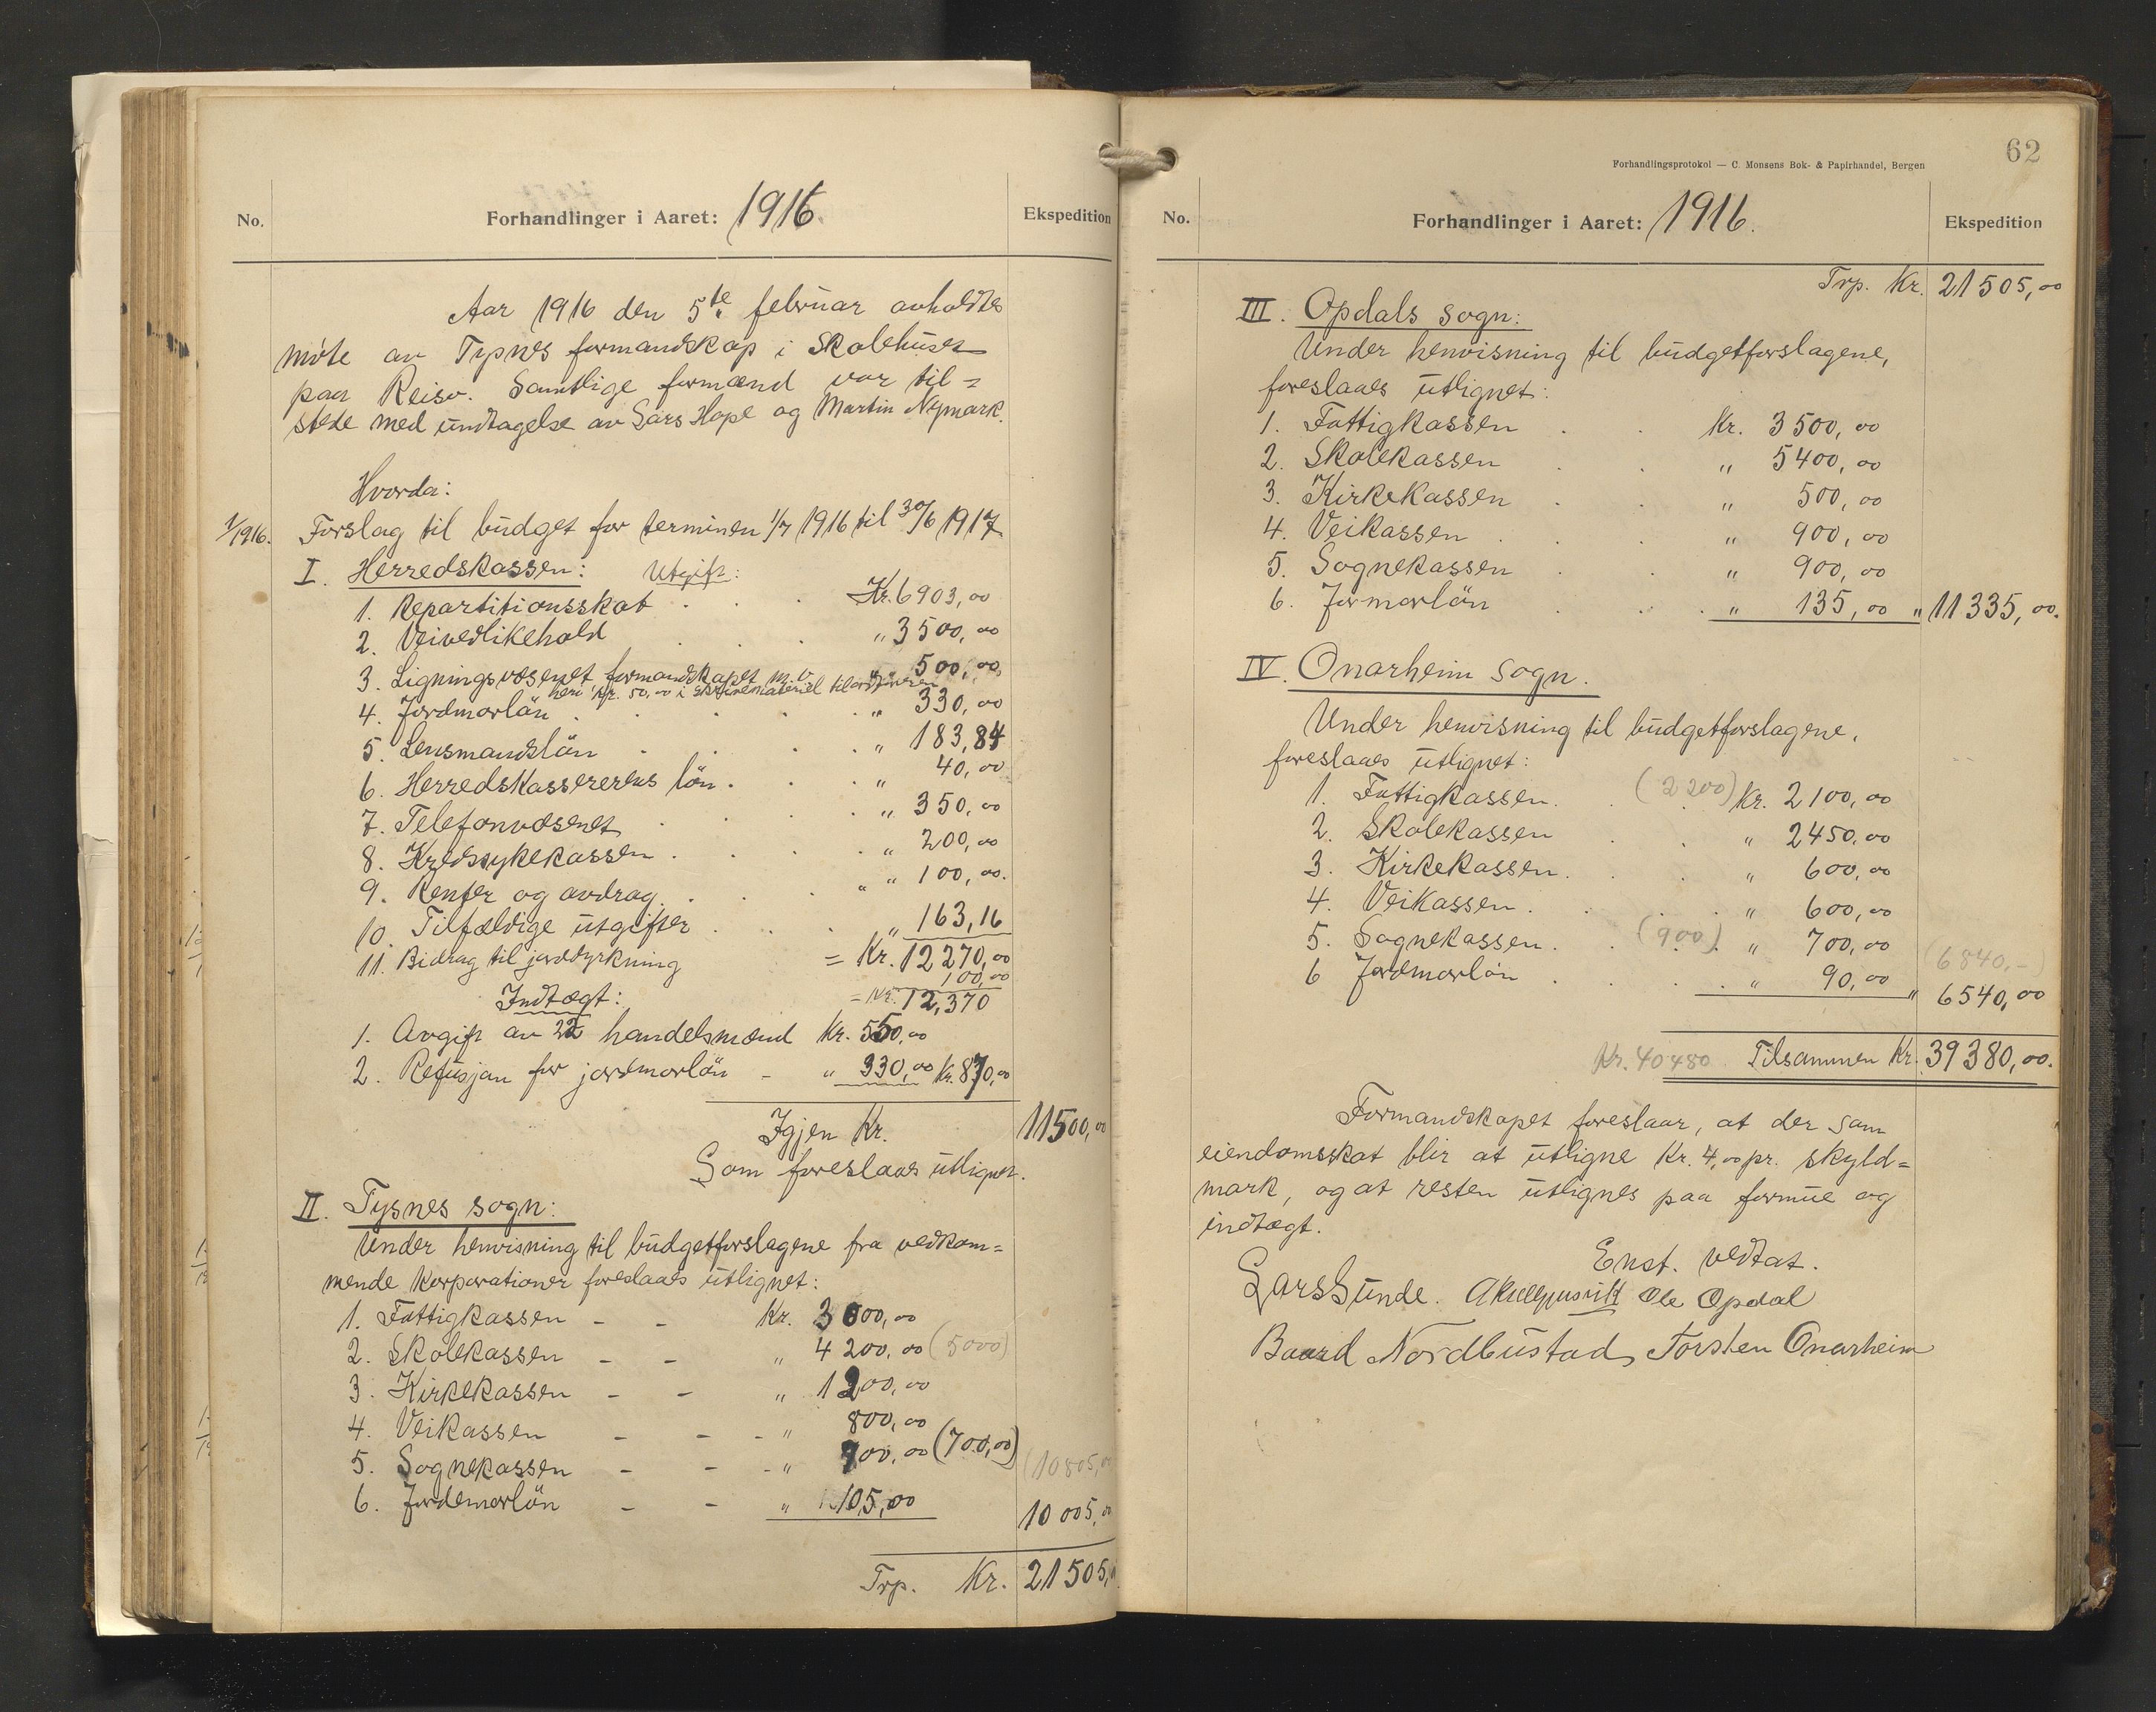 No. Forhandlinger i Aaret: 1916. Ekspedition
Aar 1916 den 5te februar avholdtes
møte av Tysnes formandskap i Skolehuset
paa Reiso. Samtlige formænd var til=
stede med undtagelse av Lars Hope og Martin Nymark.
Hvorda:
1/1916. Forslag til budget for terminen 1/7 1916 til 30/6 1917
I. Herredskassen: Utgift:
1. Repartitionsskat . . . Kr. 6903,00
2. Veivedlikehold . . " 3500,00
3. Ligningsvæsenet formandskapet m.v. " 500,00
heri kr. 50,00 i skrivemateriel til ordføreren
4. Jordmorlön . . . . " 330,00
5. Lensmandslön . . . . " 183,84
6. Herredskassererens lön . . . " 40,00
7. Telefonvæsenet . . . . " 350,00
8. Kredssykekassen . . . . " 200,00
9. Renter og avdrag . . . " " 100,00.
10. Tilfældige utgifter . . . " 163,16
= Kr. 12270,00
11. Bidrag til jorddyrkning 100,00
= Kr. 12,370
Indtægt:
1. Avgift av 22 handelsmænd Kr. 550,00
2. Refusjon for jordmorlön - " 330,00 Kr. 870,00
Igjen Kr. 11500,00
Som foreslaaes utlignet.
II. Tysnes sogn:
Under henvisning til budgetforslagene fra vedkom=
mende korporationer foreslaaes utlignet:
1. Fattigkassen - - Kr. 3000,00
2. Skolekassen - - " 4200,00 (5000)
3. Kirkekassen - - " 1200,00
4. Veikassen - - - " 800,00
5. Sognekassen - - - " 700,00 (700,00)
(10805,00
6. Jordemorlön - - " 105,00
10005,00
Trp. Kr. 21505,00
62
Forhandlingsprotokol — C. Monsens Bok- & Papirhandel, Bergen
No. Forhandlinger i Aaret: 1916. Ekspedition
Trp. Kr. 21505,00
III. Opdals sogn:
Under henvisning til budgetforslagene,
foreslaaes utlignet:
1. Fattigkassen . . Kr. 3500,00
2. Skolekassen . . " 5400,00
3. Kirkekassen . . " 500,00
4. Veikassen . . . " 900,00
5. Sognekassen . . " 900,00
6. Jormorlön . . . " 135,00 " 11335,00.
IV. Onarheim sogn.
Under henvisning til budgetforslagene,
foreslaaes utlignet:
1. Fattigkassen. . (2200) Kr. 2100,00
2. Skolekassen . . " 2450,00
3. Kirkekassen. . " 600,00
4. Veikassen. . . . " 600,00
5. Sognekassen. . (900). " 700,00
(6840,-)
6 Jordmorlön . . . . " 90,00
" 6540,00
Kr. 40480 Tilsammen Kr. 39380,00.
Formandskapet foreslaar, at der som
eiendomsskat blir at utligne Kr. 4,00 pr. skyld=
mark, og at resten utlignes paa formue og
indtægt.
Enst. vedtat.
Lars Sunde. Ole Opdal
Baard Nordbustad, Torsten Onarheim